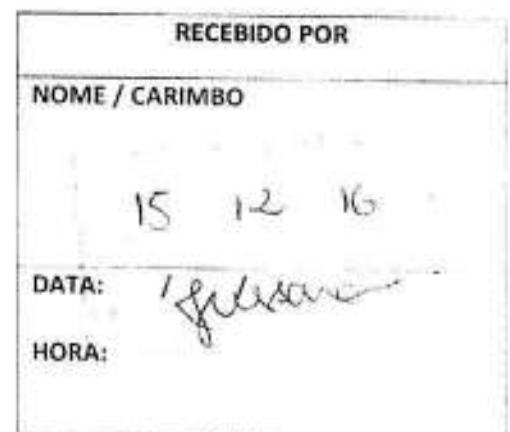 RECEBIDO POR
NOME / CARIMBO
15 12 16
DATA:
HORA: